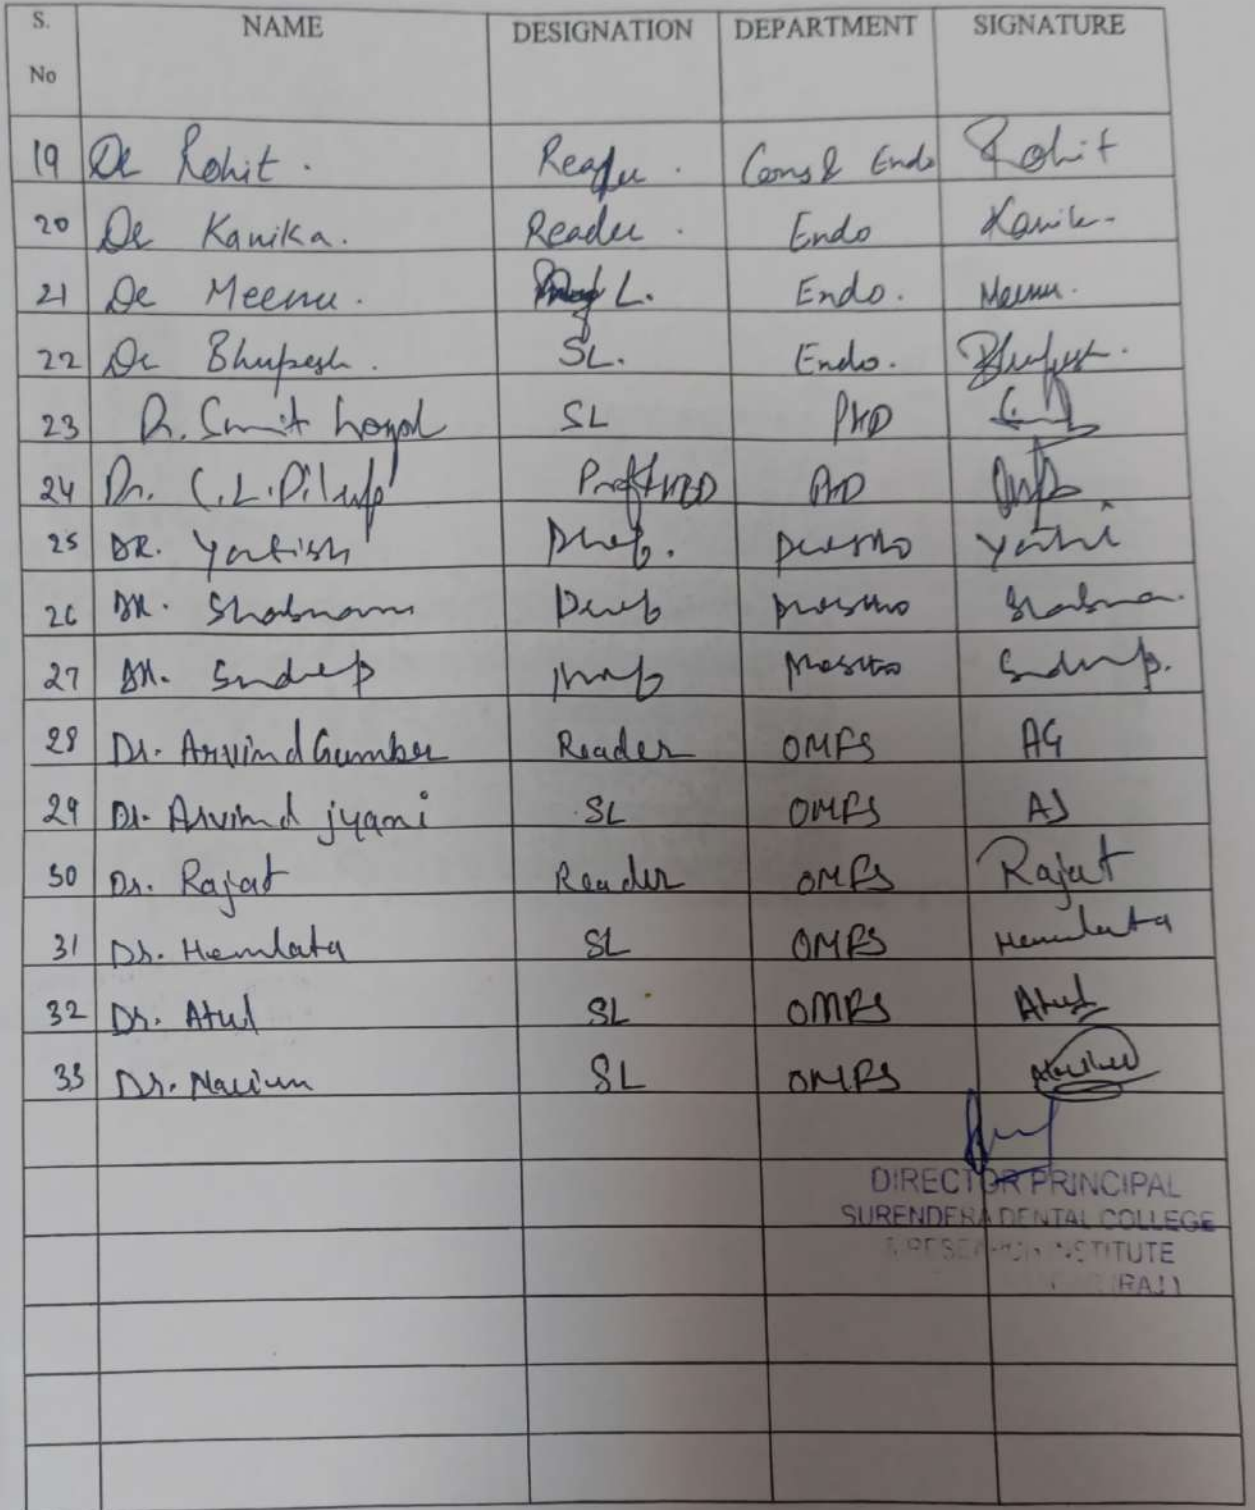 S. No NAME DESIGNATION DEPARTMENT SIGNATURE
19 Dr Rohit. Reader. Cons & Endo Rohit
20 Dr Kanika. Reader. Endo Kanik-
21 Dr Meenu. L. Endo. Meenu.
22 Dr Bhupesh. SL. Endo. Bhupesh.
23 Dr. Smit SL PHD
24 Dr. C.L. Dilup Prof & HOD PHD
25 DR. Yatish Prof. prostho Yatis
26 DR. Shabnam Prof prostho Shabna.
27 DR. Sndeep Prof prostho Sndeep.
28 Dr. Arvind Gumber Reader OMFS AG
29 Dr. Arvind jyani SL OMFS AJ
30 Dr. Rajat Reader OMFS Rajat
31 Dr. Hemlata SL OMFS Hemlata
32 Dr. Atul SL OMFS Atul
33 Dr. SL OMFS
DIRECTOR PRINCIPAL
SURENDERA DENTAL COLLEGE
& RESEARCH INSTITUTE
(RAJ.)